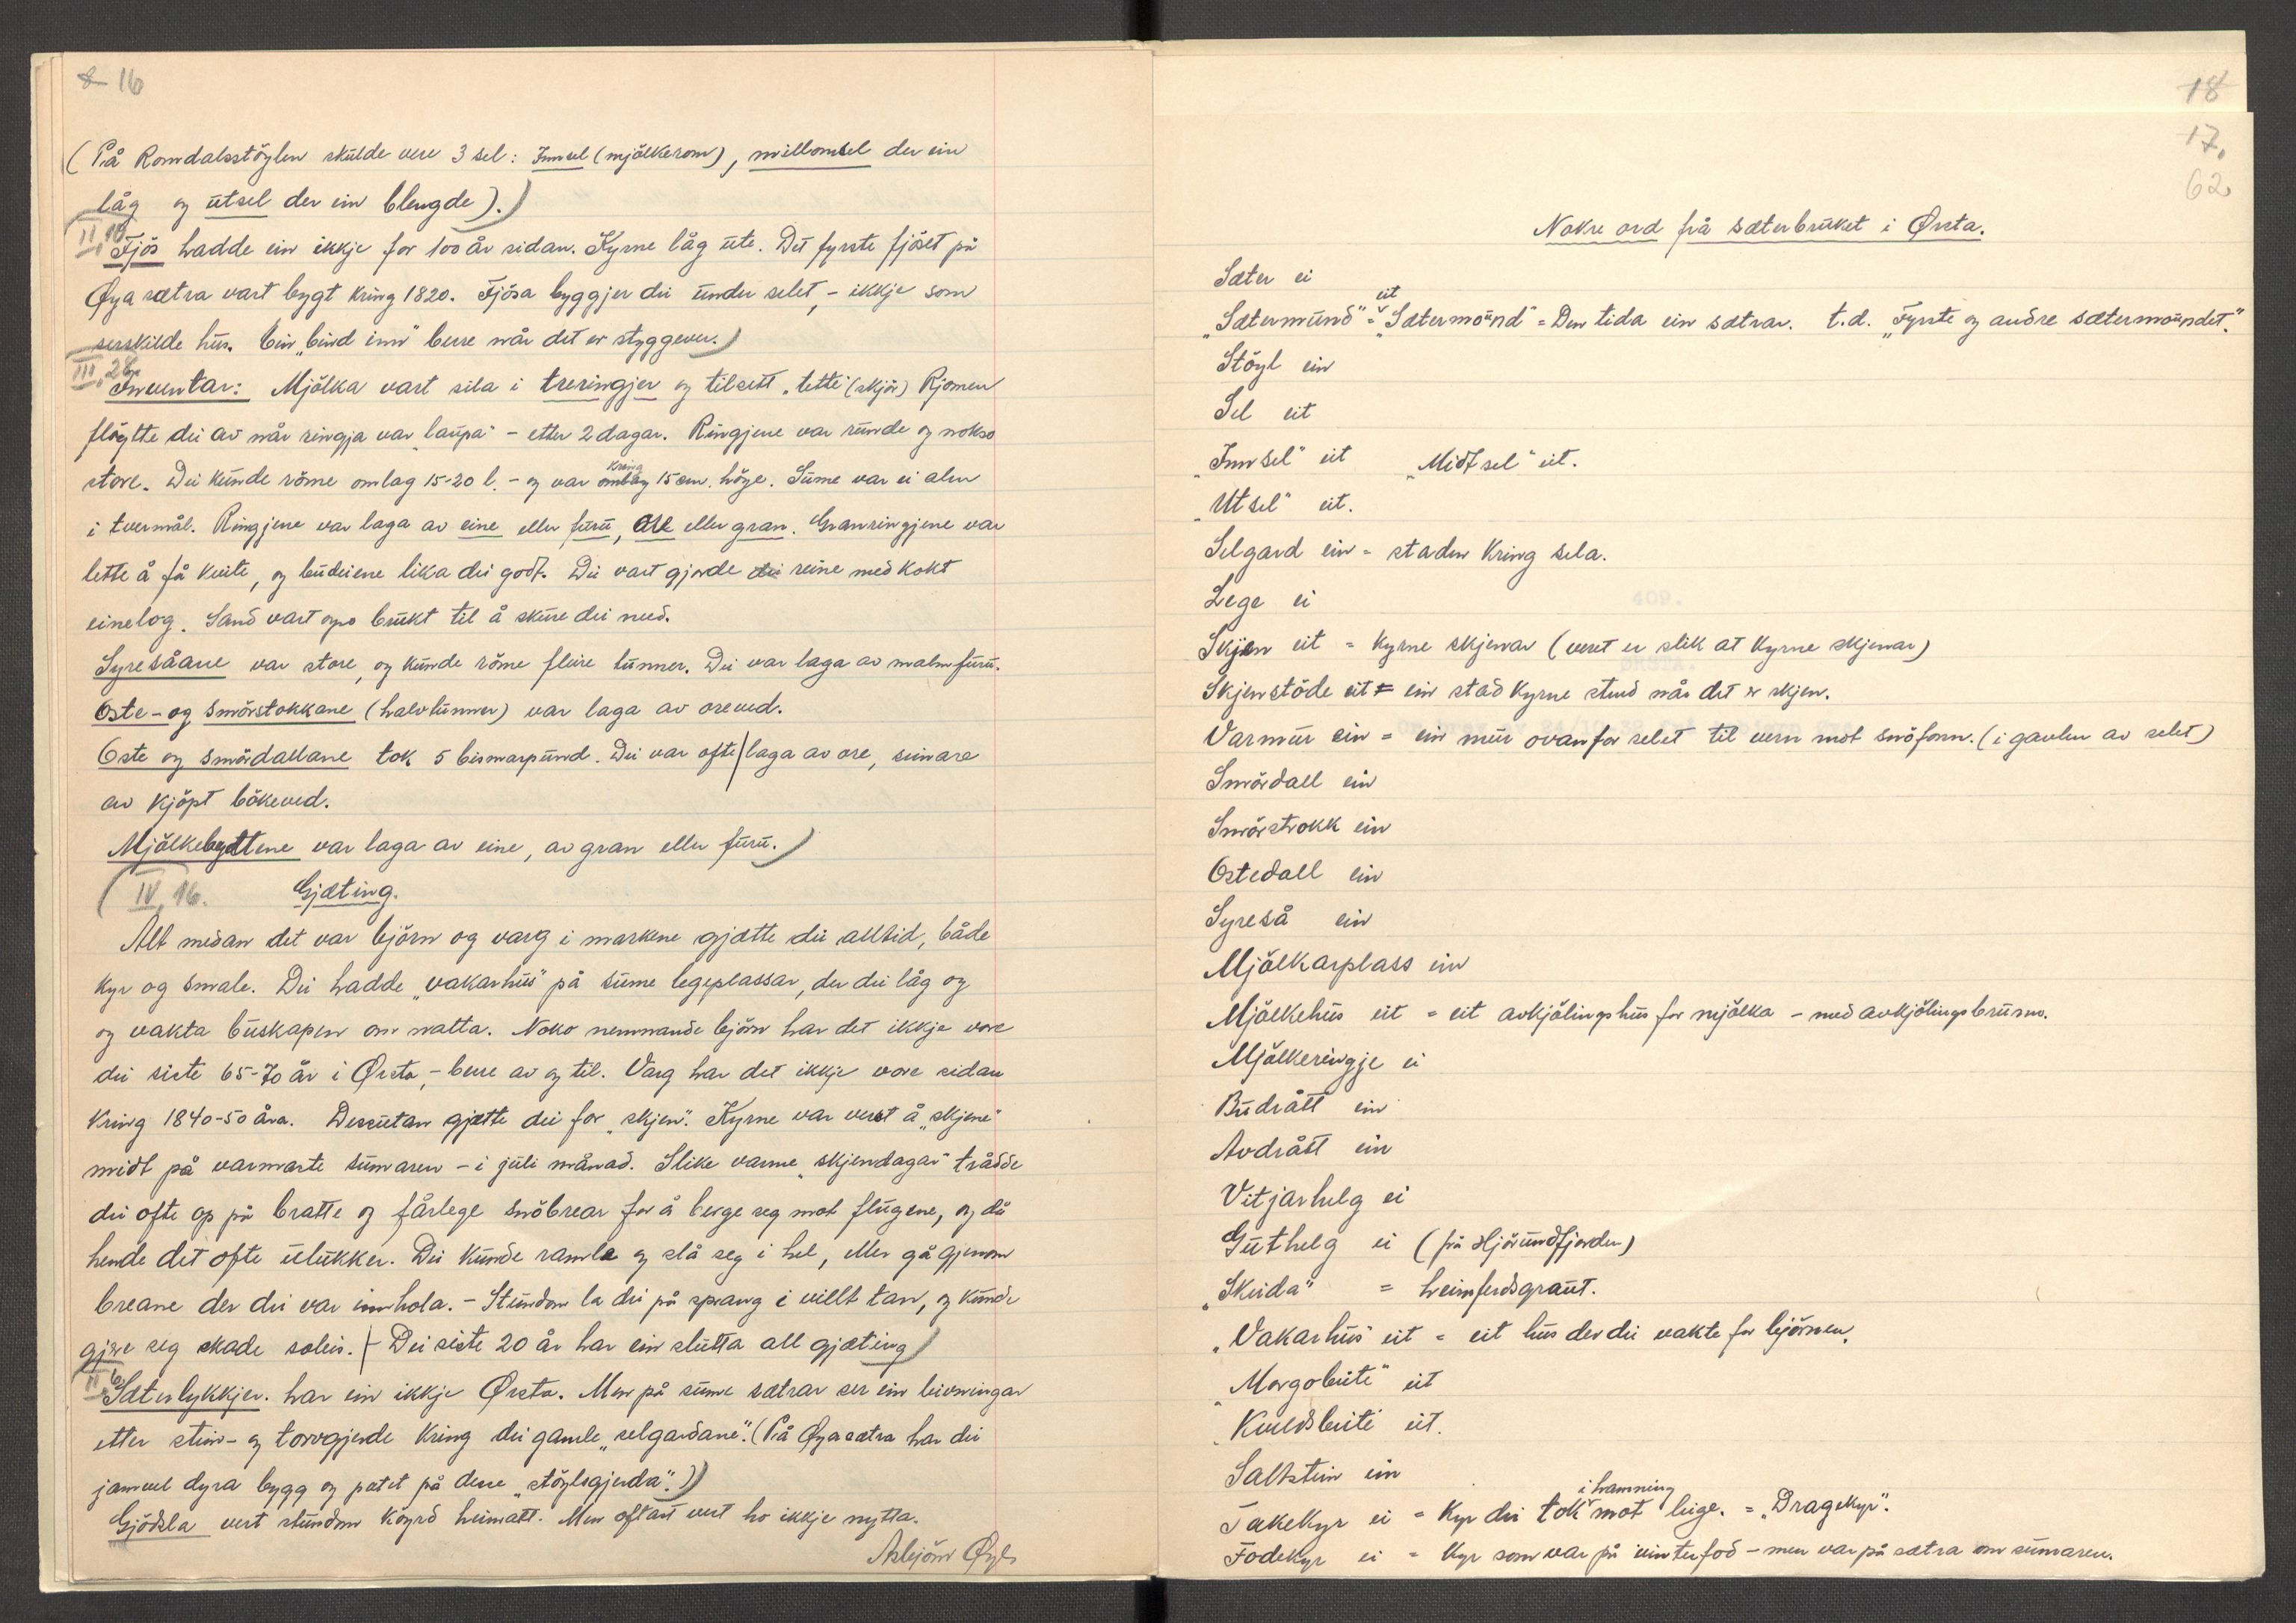 8 16
( På Romdalsstöylen skulde vere 3 sel: Innsel (mjölkerom), millomsel der ein
låg og utsel der ein blengde).)
II, 10
Fjös hadde ein ikkje for 100 år sidan. Kyrne låg ute. Det fyrste fjöset på
Øya sætra vart bygt kring 1820. Fjösa byggjer dei under selet, - ikkje som
serskilde hus. Ein „bind inn" berre når det er styggever.)
III, 28
Inventar: Mjölka vart sila i treringjer og tilsett „tette" (skjör) Rjomen
flöytte dei av når ringja var „laupa" - etter 2 dagar. Ringjene var runde og nokso
store. Dei kunde röme omlag 15-20 l. - og var omlag kring 15 cm. höge. Sume var ei aln
i tvermål. Ringjene var laga av eine eller furu, ore eller gran. Granringjene var
lette å få kvite, og budeiene lika dei godt. Dei vart gjorde dei reine med kokt
einelog. Sand vart opo brukt til å skure dei med.
Syresåane var store, og kunde röme fleire tunner. Dei var laga av malmfuru.
Oste- og smörstokkane (halvtunner) var laga av oreved.
Oste og smördallane tok 5 bismarpund. Dei var ofte laga av ore, seinare
av kjöpt bökeved.
Mjölkebyttene var laga av eine, av gran eller furu.)
( IV, 16. Gjæting.
Alt medan det var björn og varg i markene gjætte dei alltid, både
kyr og smale. Dei hadde „vakarhus" på sume legeplassar, der dei låg og
og vakta buskapen om natta. Noko nemnande björn har det ikkje vore
dei siste 65-70 år i Ørsta, - berre av og til. Varg har det ikkje vore sidan
kring 1840-50 åra. Dessutan gjætte dei for „skjen". Kyrne var verst å „skjene"
midt på varmaste sumaren - i juli månad. Slike varme „skjendagar" trådde
dei ofte op på bratte og fårlege snöbrear for å berge seg mot flugene, og då
hende det ofte ulukker. Dei kunde ramle og slå seg i hel, eller gå gjenom
breane der dei var innhola. - Stundom la dei på sprang i villt tan, og kunde
gjere seg skade soleis. - Dei siste 20 år har ein slutta all gjæting)
II, 6
Sæterlykkjer. har ein ikkje Ørsta. Men på sume sætrar ser ein leivningar
etter stein- og torvgjerde kring dei gamle „selgardane". (På Øyasætra har dei
jamvel dyra bygg og potet på desse „stöylsgjerda".))
Gjödsla vert stundom köyrd heimatt. Men oftast vert ho ikkje nytta.
Asbjörn Øye
18
17.
62.
Nokre ord frå sæterbruket i Ørsta.
Sæter ei
„Sætermund" = eit „Sætermo͞und" = Den tida ein sætrar. t.d. „Fyrste og andre sætermoundet."
Stöyl ein
Sel eit
„Innsel" eit „Midtsel" eit.
„Utsel" eit.
Selgard ein = staden kring sela.
Lege ei
Skjen eit = kyrne skjenar (veret er slik at kyrne skjenar)
Skjenstöde eit = ein stad kyrne stend når det er skjen.
Varmur ein = ein mur ovanfor selet til vern mot snöfonn. (i gavlen av selet)
Smördall ein
Smörstrokk ein
Ostedall ein
Syreså ein
Mjölkarplass ein
Mjölkehus eit = eit avkjölingshus for mjölka - med avkjölingsbrunn.
Mjölkeringje ei
Budrått ein
Avdrått ein
Vitjarhelg ei
Guthelg ei (frå Hjörundfjorden)
„Skeida" = heimferdsgraut.
„Vakarhus" eit = eit hus der dei vakte for björnen.
„Morgobeite" eit
„Kveldsbeite" eit.
Saltstein ein
Takekyr ei = Kyr dei tok i hamning mot leige. = „Dragekyr".
Fodekyr ei = Kyr som var på vinterfod - men var på sætra om sumaren.